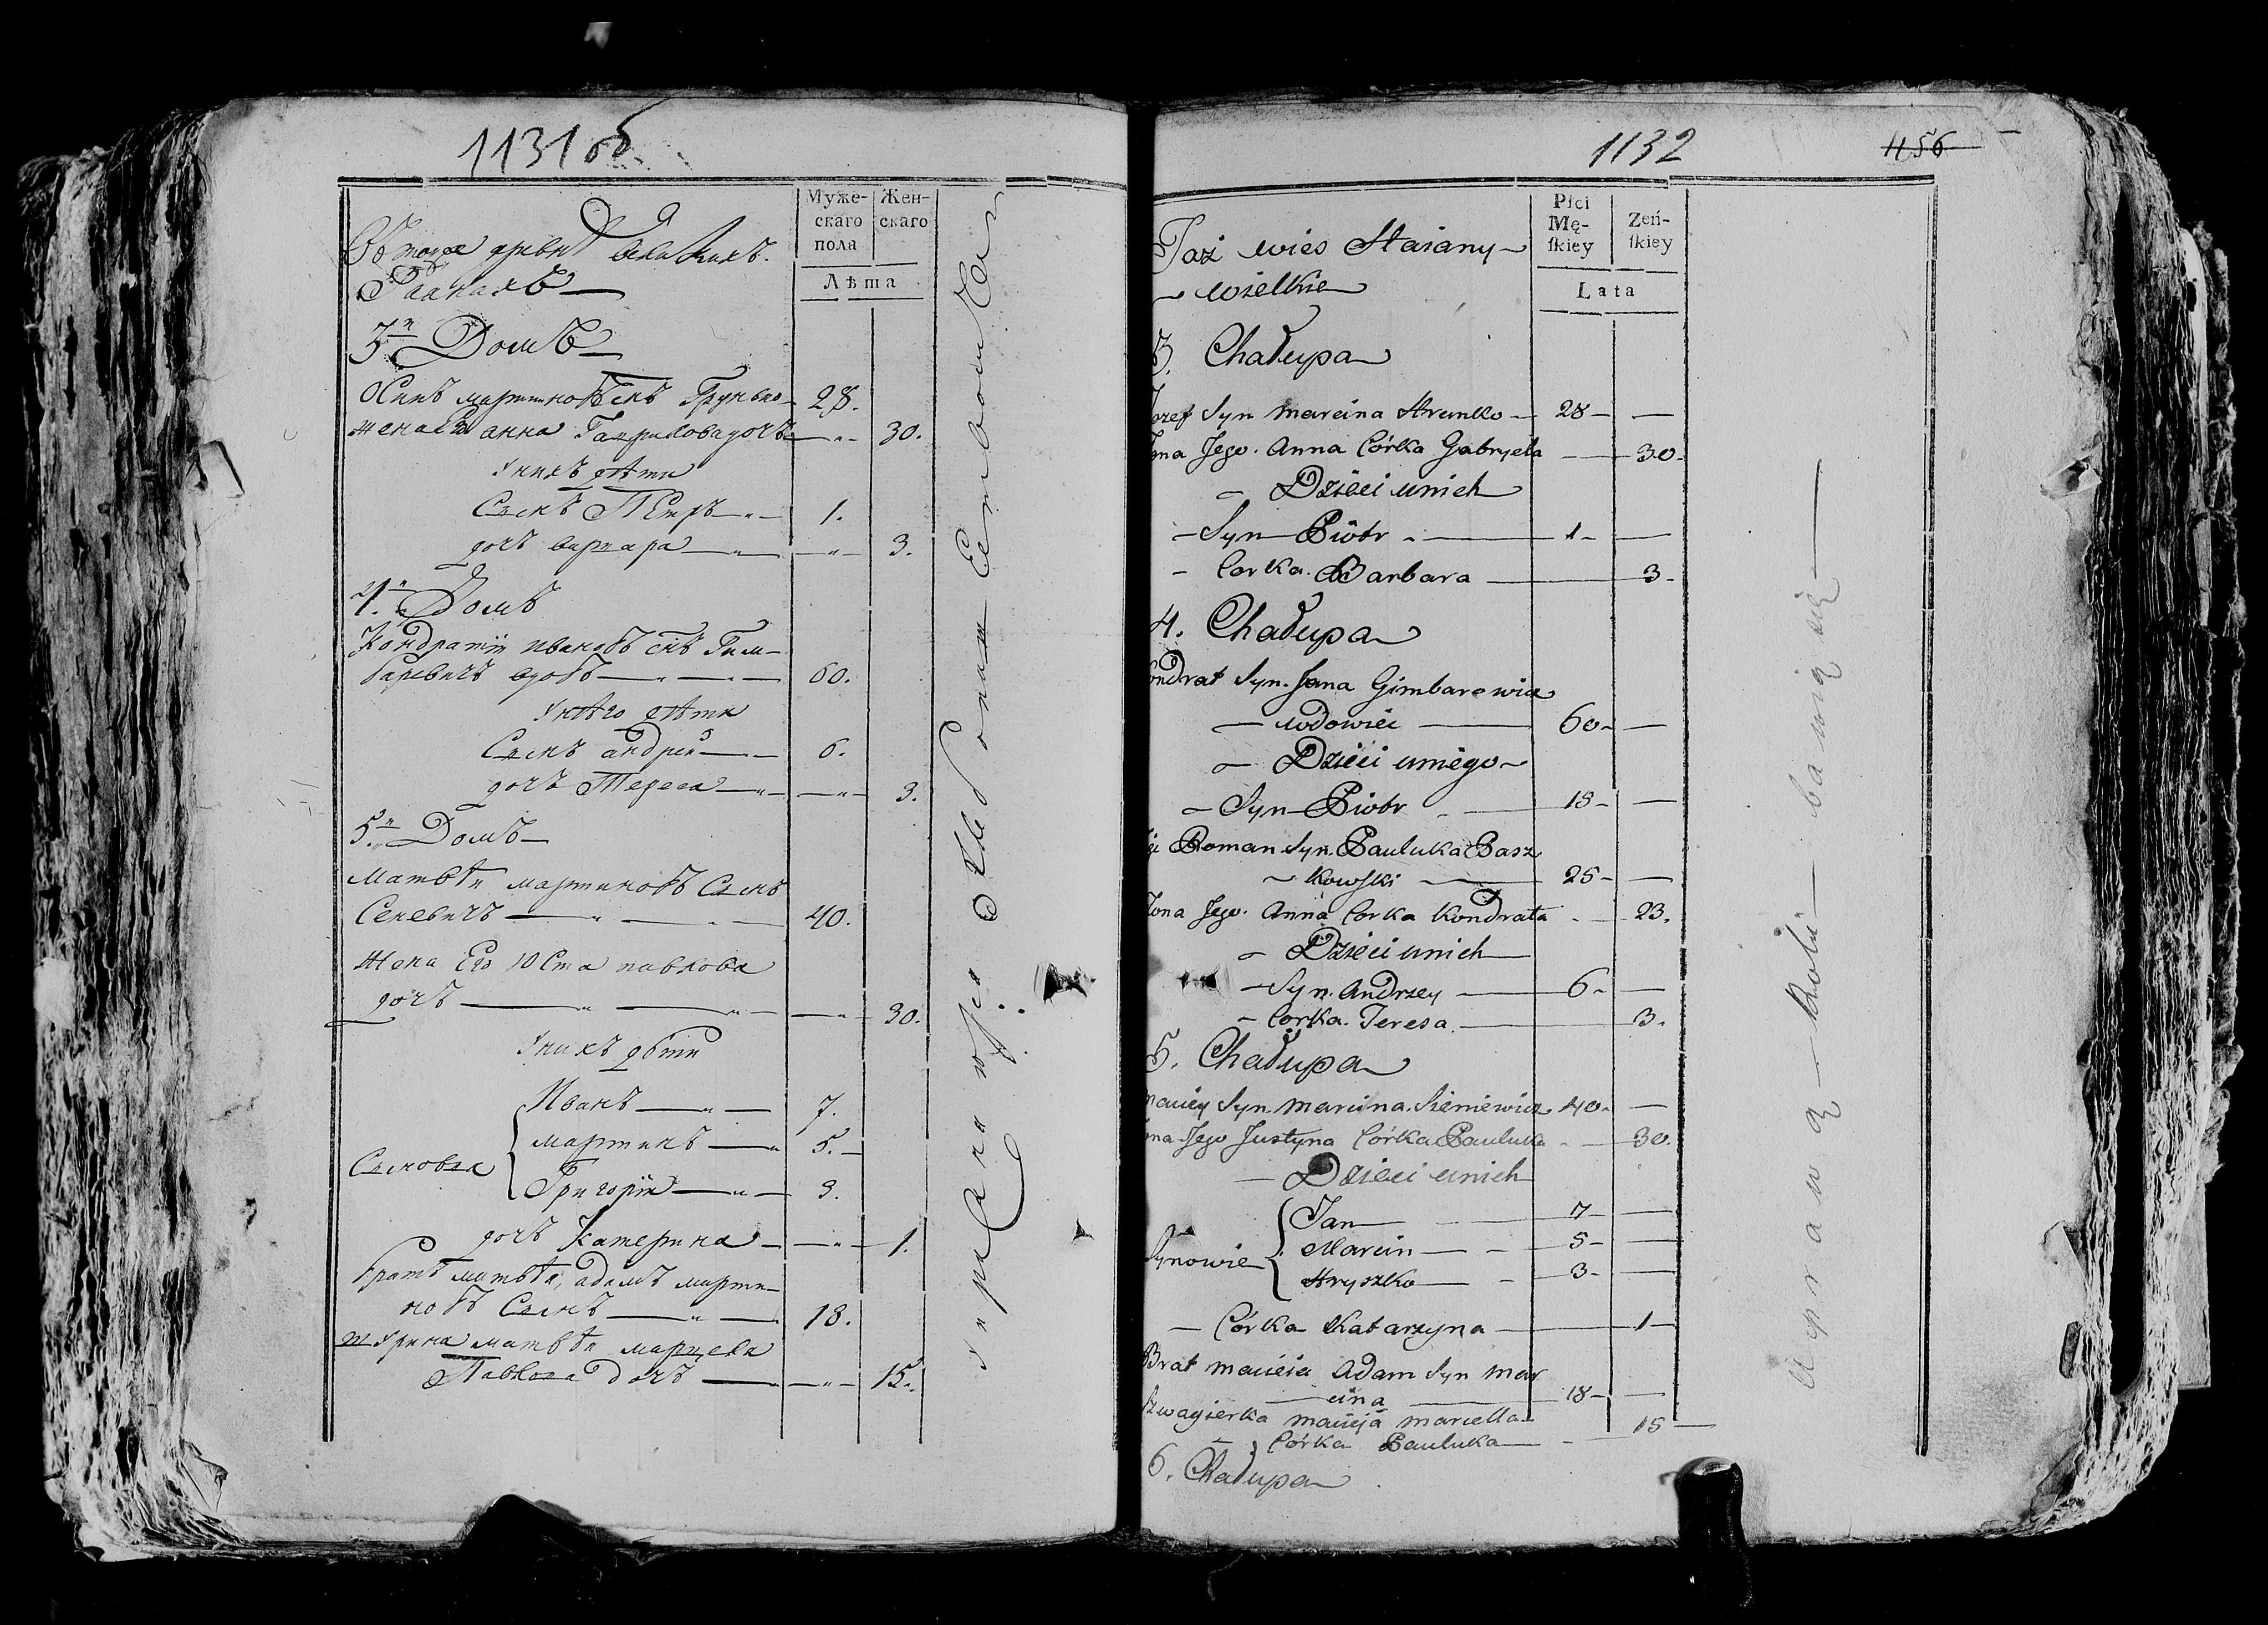 1131 об
Муже-
скаго
пола
Жен-
скаго
Лѣта
Въ тоже
3. Домъ
Осипъ мартиновъ снъ Грунько 28.
жена Его анна Гаврилова дочь 30.
У нихъ дѣти
Сынъ Петръ 1.
дочь варвара 3.
4. Домъ
Кондратiй ивановъ снъ Гим-
баревичъ вдовъ 60.
У нѣго дѣти
Сынъ андрей 6.
дочь Тереса 3.
5. Домъ
Матвѣй мартиновъ Сынъ
Сеневичъ 40.
Жена Его Юста павлова
дочь 30.
У нихъ дѣти
Иванъ 7.
мартинъ 5.
Сыновья
Григорiй 3.
дочь Катерина 1.
братъ матвѣя, адамъ марти-
новъ Сынъ 18.
матвѣя
Павлова дочь 15.
1132
456
Płci
Mę-
ſkiey
Zeń-
ſkiey
Lata
Taż wies Staiany
wielkie
3. Chałupa
Jozef Syn Marcina Hrunko 28
Zona Jego Anna Córka Gabryela 30
Dzieci unich
Syn Piotr 1
Corka Barbara 3
4. Chałupa
Kondrat Syn Jana Gimbarewicz
wdowiec 60
Dzieci uniego
Syn Piotr 18
Roman Syn Pauluka Pasz
kowſki 25
Zona Jego Anna Corka Kondrata 23.
Dzieci unich
Syn Andrzey 6
Corka Teresa 3.
5. Chałupa
Maciey Syn Marcina Sieniewicz 40
Zona Jego Justyna Córka Pauluka 30
Dzieci unich
Jan 7
Synowie
Marcin 5
Hryszko 3
Córka Katarzyna 1
Brat Macieia Adam Syn Mar
cina 18
Szwagierka Macieja Marcella 15
Córka Pauluka
6. Chałupa